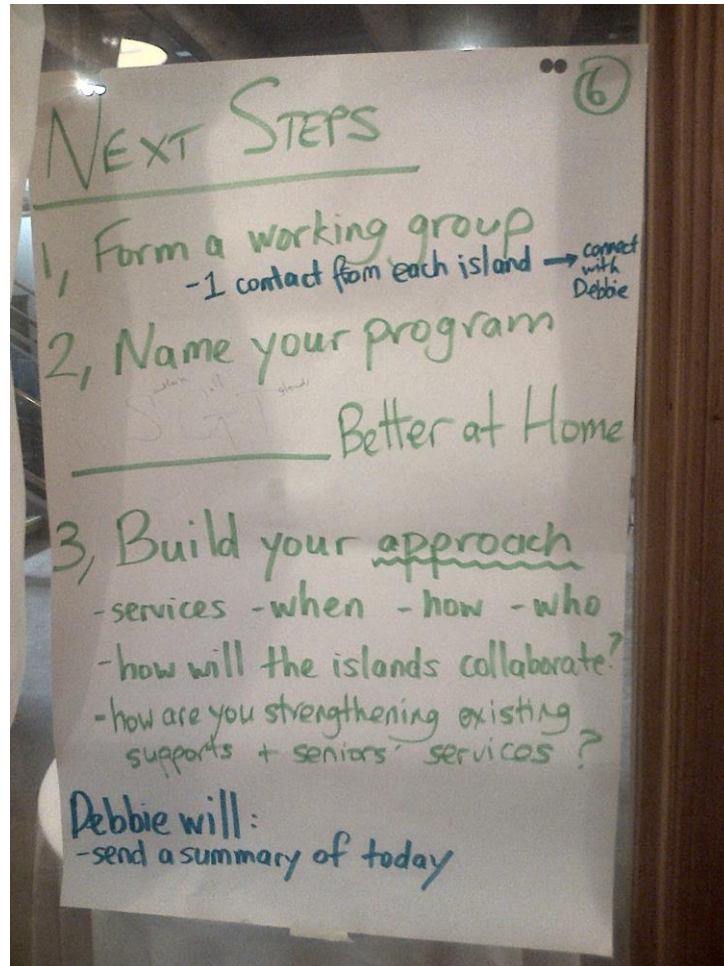 6
NEXT STEPS
1, Form a working group
-1 contact from each island → connect
with
Debbie
2, Name your program
Better at Home
3, Build your approach
-services -when -how -who
-how will the islands collaborate?
-how are you strengthening existing
supports + seniors' services?
Debbie will:
-send a summary of today